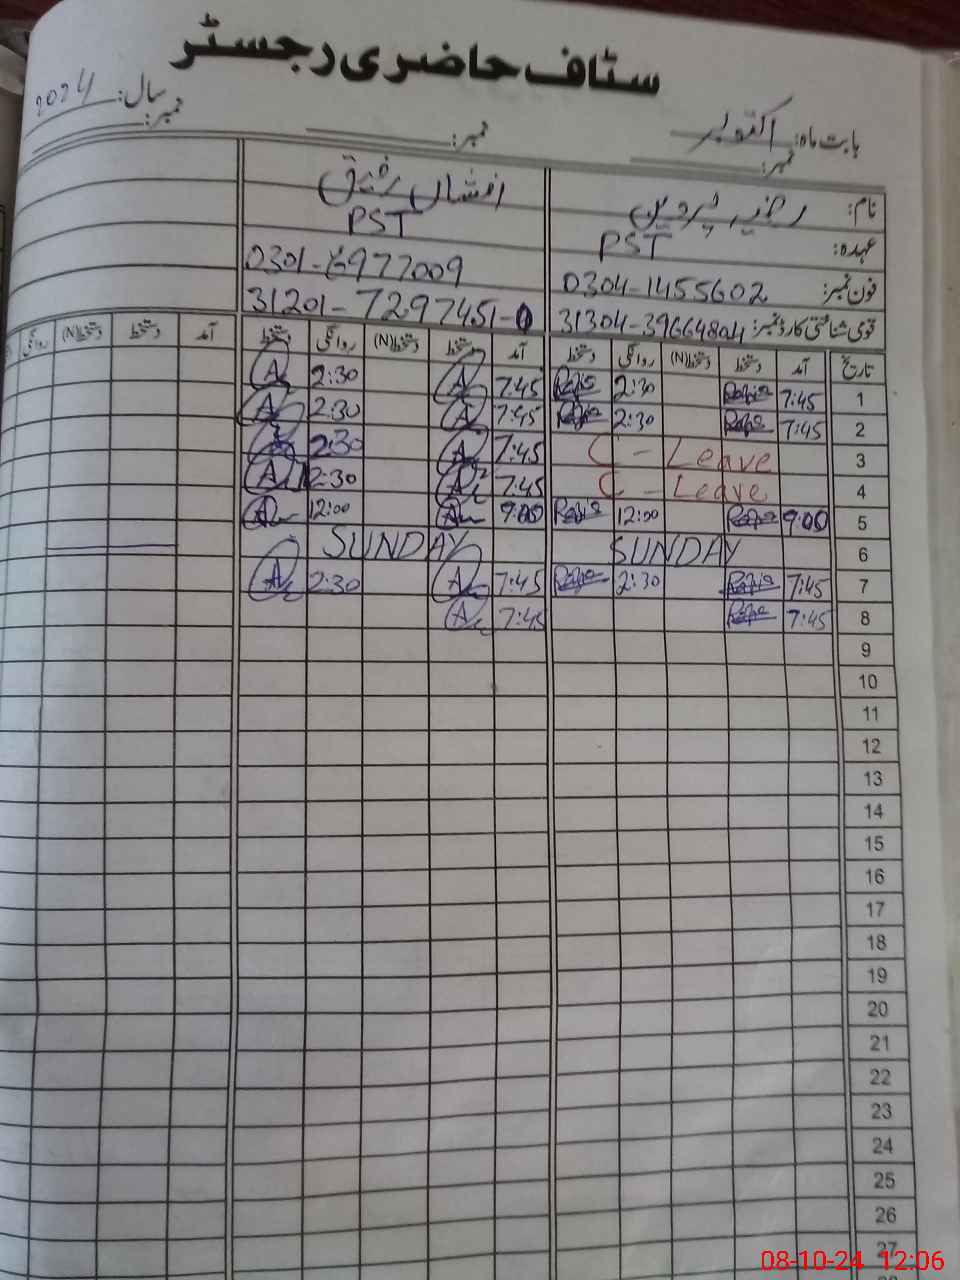 سٹاف حاضری رجسٹر
بابت ماہ: اکتوبر سال: 2024
نمبر: نمبر: نمبر:
نام: رضیہ پروین افشاں رفیق
عہدہ: PST PST
فون نمبر: 0304-1455602 0301-6977009
قومی شناختی کارڈ نمبر: 31304-39664804 31201-7297451-0
تاریخ آمد دستخط دستخط(N) روانگی دستخط آمد دستخط دستخط(N) روانگی دستخط آمد دستخط دستخط(N) روانگی
1 7:45 Razia 2:30 Razia 7:45 A 2:30 A
2 7:45 Razia 2:30 Razia 7:45 A 2:30 A
3 C - Leave 7:45 A 2:30
4 C - Leave 7:45 A 2:30 A
5 9:00 Razia 12:00 Razia 9:00 A 12:00 A
6 SUNDAY SUNDAY
7 7:45 Razia 2:30 Razia 7:45 A 2:30 A
8 7:45 Razia 7:45 A
9
10
11
12
13
14
15
16
17
18
19
20
21
22
23
24
25
26
27
08-10-24 12:06